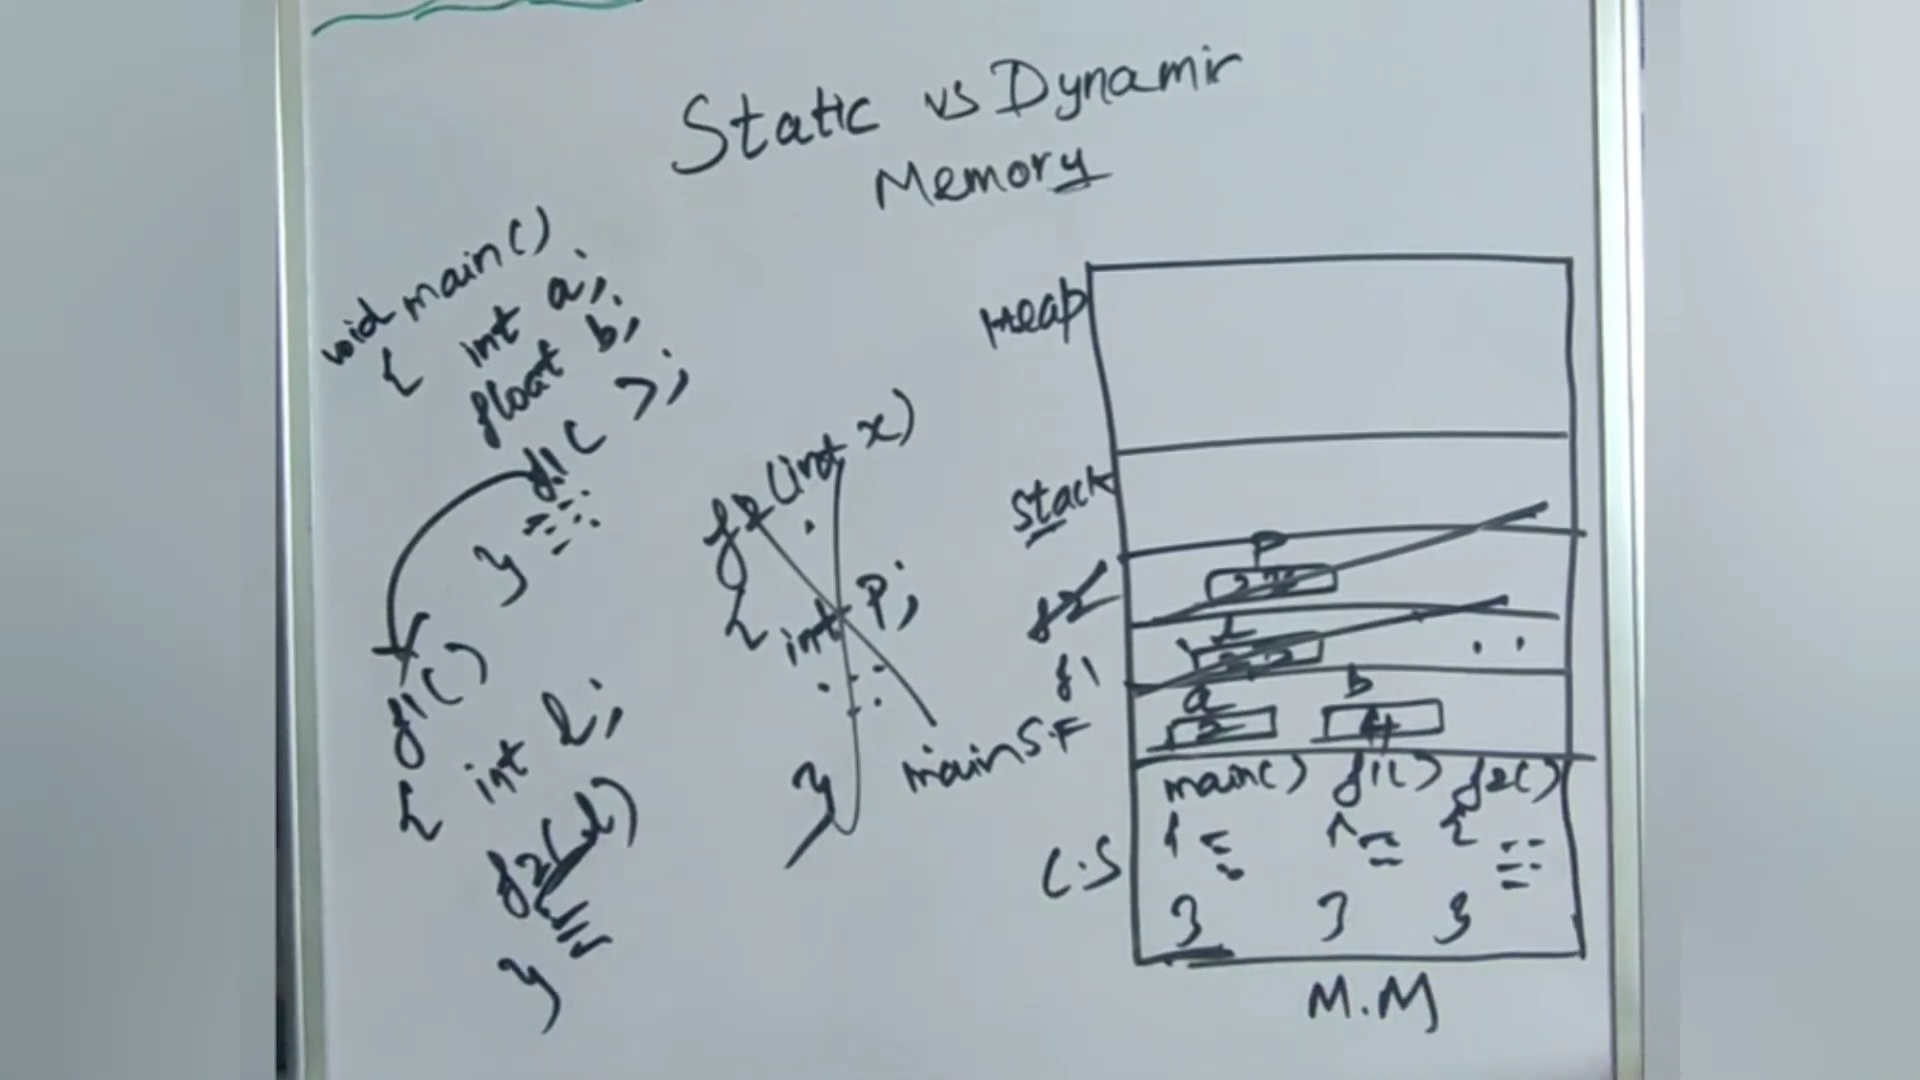 Static vs Dynamic
Memory
void main()
{ int a;
float b;
f1( );
}
f1()
{ int l;
f2(l)
}
f2(int x)
{ int P;
}
Heap
Stack
f2
P
f1
L
main S.F
a
b
2
4
C.S
main() f1() f2()
{ { {
} } }
M.M